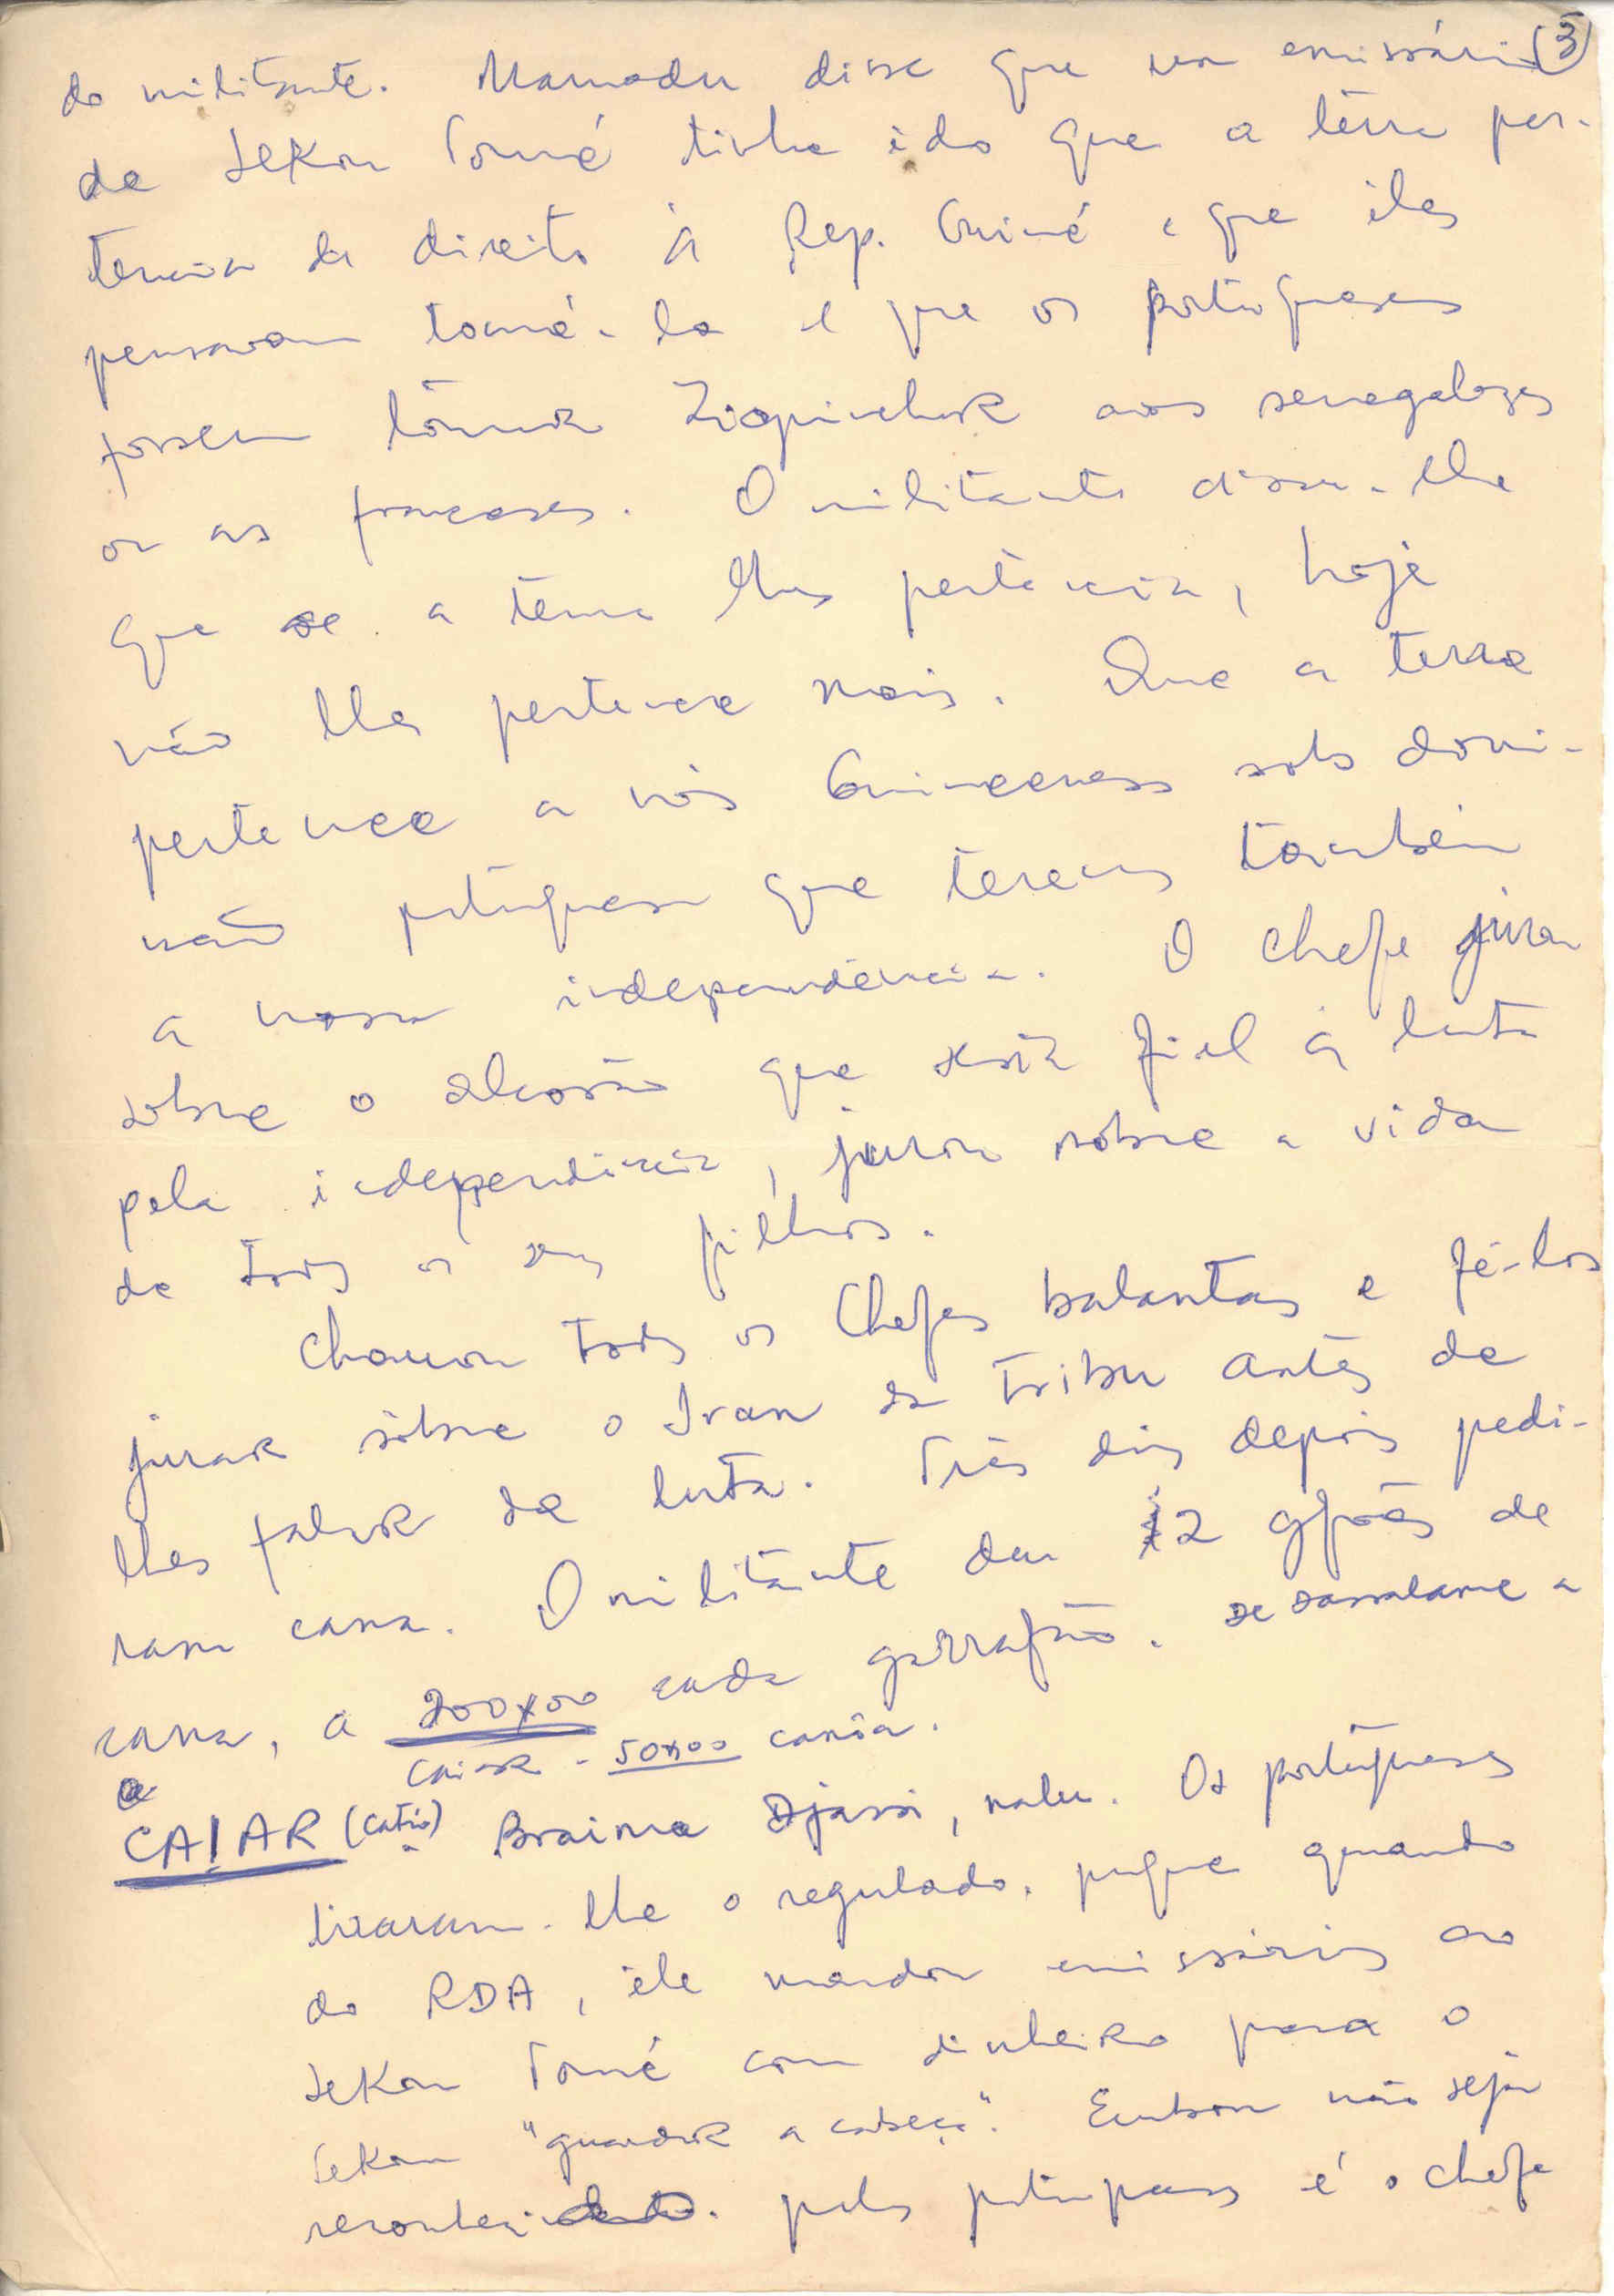 (3)
do militante. Mamadu disse que um emissário
de Sekou Touré tinha ido que a terra per-
tencia de direito à Rep. Guiné e que êles
pensavam tomá-la e que os portugueses
fossem tomar Ziguinchor aos senegaleses
ou as franceses. O militante disse-lhe
que se a terra lhes pertencia, hoje
não lhes pertence mais. Que a terra
pertence a nós Guineenses sob domi-
nação portuguesa que teremos também
a nossa independência. O chefe jurou
sobre o alcorão que será fiel à luta
pela independência, jurou sobre a vida
de todos os seus filhos.
Chamou todos os Chefes balantas e fê-los
jurar sôbre o Iran da tribu antes de
lhes falar da luta. Três dias depois pedi-
ram cana. O militante deu 12 gfões de
cana, a 200x00 cada garrafão. de a
Caiar - 50x00 canôa.
CAIAR (Catió) Braima Djassi, nalu. Os portugueses
tiraram-lhe o regulado, pqque quando
do RDA, êle mandou emissários ao
Sekou Touré com dinheiro para o
Sekou "guardar a cabeça". Embora não seja
pelos portugueses é o chefe